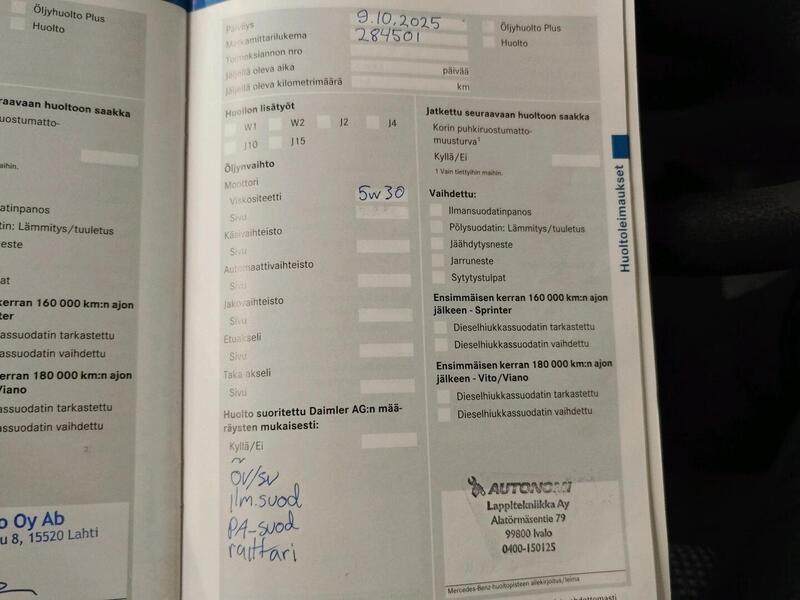 Öljyhuolto Plus
Huolto
raavaan huoltoon saakka
ruostumatto-
aihin.
datinpanos
tin: Lämmitys/tuuletus
neste
pat
kerran 160 000 km:n ajon
ter
kassuodatin tarkastettu
kassuodatin vaihdettu
erran 180 000 km:n ajon
Viano
assuodatin tarkastettu
assuodatin vaihdettu
o Oy Ab
u 8, 15520 Lahti
Päiväys 9.10.2025
Matkamittarilukema 284501
Työmääräannon nro
Jäljellä oleva aika päivää
Jäljellä oleva kilometrimäärä km
Öljyhuolto Plus
Huolto
Huollon lisätyöt
W1 W2 J2 J4
J10 J15
Öljynvaihto
Moottori
Viskositeetti 5w30
Sivu
Käsivaihteisto
Sivu
Automaattivaihteisto
Sivu
Jakovaihteisto
Sivu
Etuakseli
Sivu
Taka-akseli
Sivu
Huolto suoritettu Daimler AG:n mää-
räysten mukaisesti:
Kyllä/Ei
öv/sv
ilm.suod
PA-suod
raittari
Jatkettu seuraavaan huoltoon saakka
Korin puhkiruostumatto-
muusturva¹
Kyllä/Ei
1 Vain tiettyihin maihin.
Vaihdettu:
Ilmansuodatinpanos
Pölysuodatin: Lämmitys/tuuletus
Jäähdytysneste
Jarruneste
Sytytystulpat
Ensimmäisen kerran 160 000 km:n ajon
jälkeen - Sprinter
Dieselhiukkassuodatin tarkastettu
Dieselhiukkassuodatin vaihdettu
Ensimmäisen kerran 180 000 km:n ajon
jälkeen - Vito/Viano
Dieselhiukkassuodatin tarkastettu
Dieselhiukkassuodatin vaihdettu
AUTONOMI
Lappitekniikka Ay
Alatörmäsentie 79
99800 Ivalo
0400-150125
Mercedes-Benz-huoltopisteen allekirjoitus/leima
Huoltoleimaukset